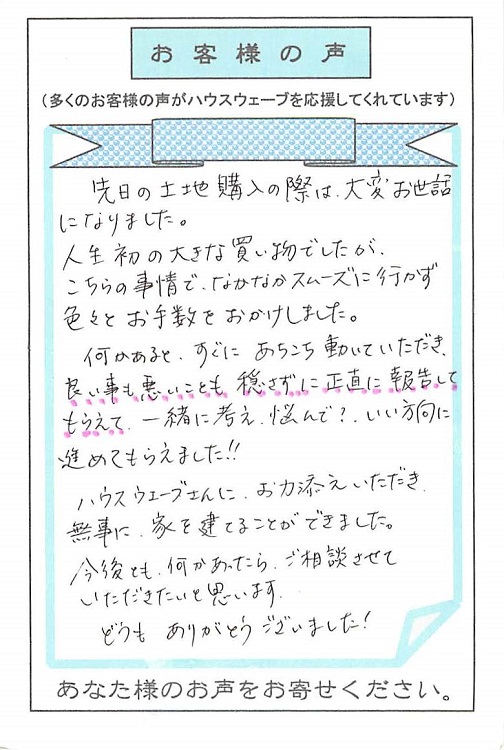 お客様の声
(多くのお客様の声がハウスウェーブを応援してくれています)
先日の土地購入の際は、大変お世話
になりました。
人生初の大きな買い物でしたが、
こちらの事情で、なかなかスムーズに行かず
色々とお手数をおかけしました。
何かあると、すぐにあちこち動いていただき、
良い事も悪いことも、隠さずに正直に報告して
もらえて、一緒に考え、悩んで?、いい方向に
進めてもらえました!!
ハウスウェーブさんに、お力添えいただき、
無事に、家を建てることができました。
今後とも、何かあったら、ご相談させて
いただきたいと思います。
どうもありがとうございました!
あなた様のお声をお寄せください。